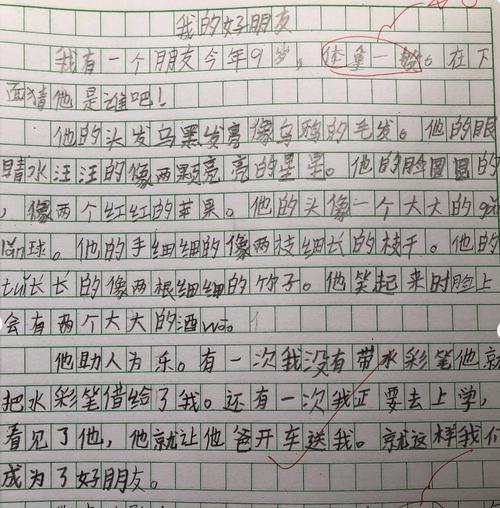 我的好朋友
我有一个朋友今年9岁，体拿一般。在下
面猜他是谁吧！
他的头发乌黑发亮像乌鸦的毛发。他的眼
睛水汪汪的像两颗亮亮的星星。他的脸圆圆的
，像两个红红的苹果。他的头像一个大大的
lán球。他的手细细的像两枝细长的枝干。他的
tuǐ长长的像两根细细的竹子。他笑起来时脸上
会有两个大大的酒wō。
他助人为乐。有一次我没有带水彩笔他就
把水彩笔借给了我。还有一次我正要去上学，
看见了他，他就让他爸开车送我。就这样我们
成为了好朋友。